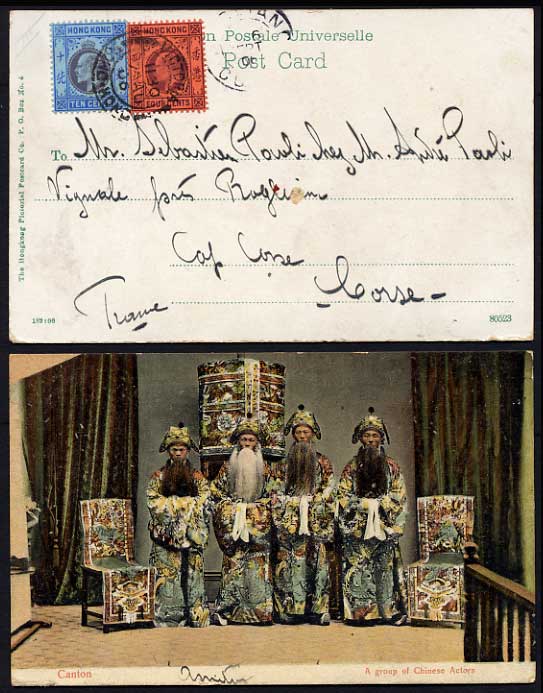 HONG KONG HONG KONG
TEN CENTS FOUR CENTS
on Postale Universelle
Post Card
The Hongkong Pictorial Postcard Co. P. O. Box No. 4
To Mr. Sebastien Paoli chez Mr. André Paoli
Vignale près Rogliano
Cap Corse
Corse
France
80523
Canton
A group of Chinese Actors